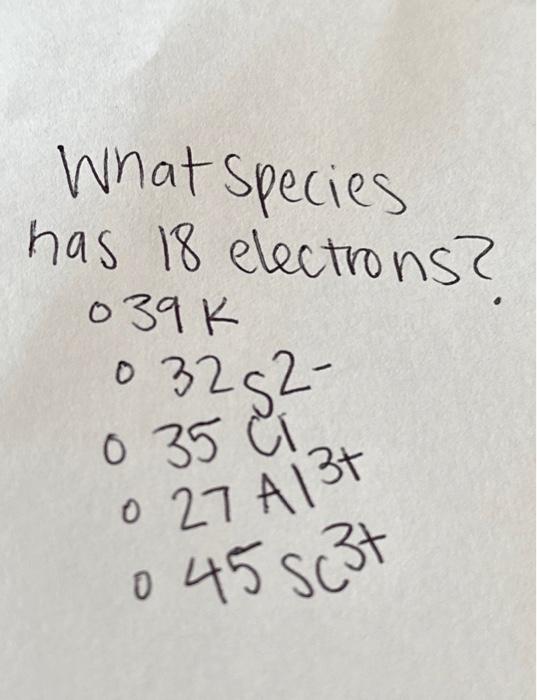 What species
has 18 electrons?
o 39 K
o 32 S2-
o 35 Cl
o 27 Al3+
o 45 Sc3+